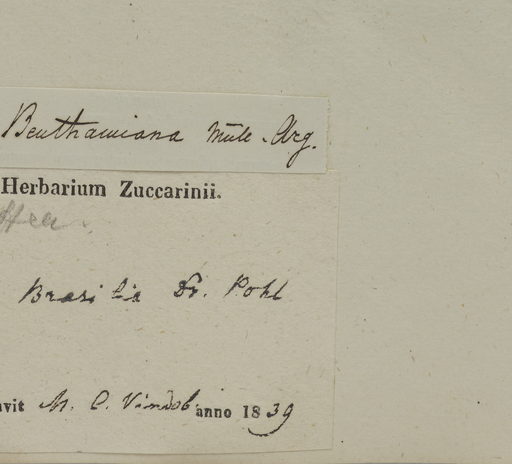 Benthamiana Müll. Arg.
Herbarium Zuccarinii.
ffea.
Brasilia Dr. Pohl
avit M. C. Vindob. anno 1839